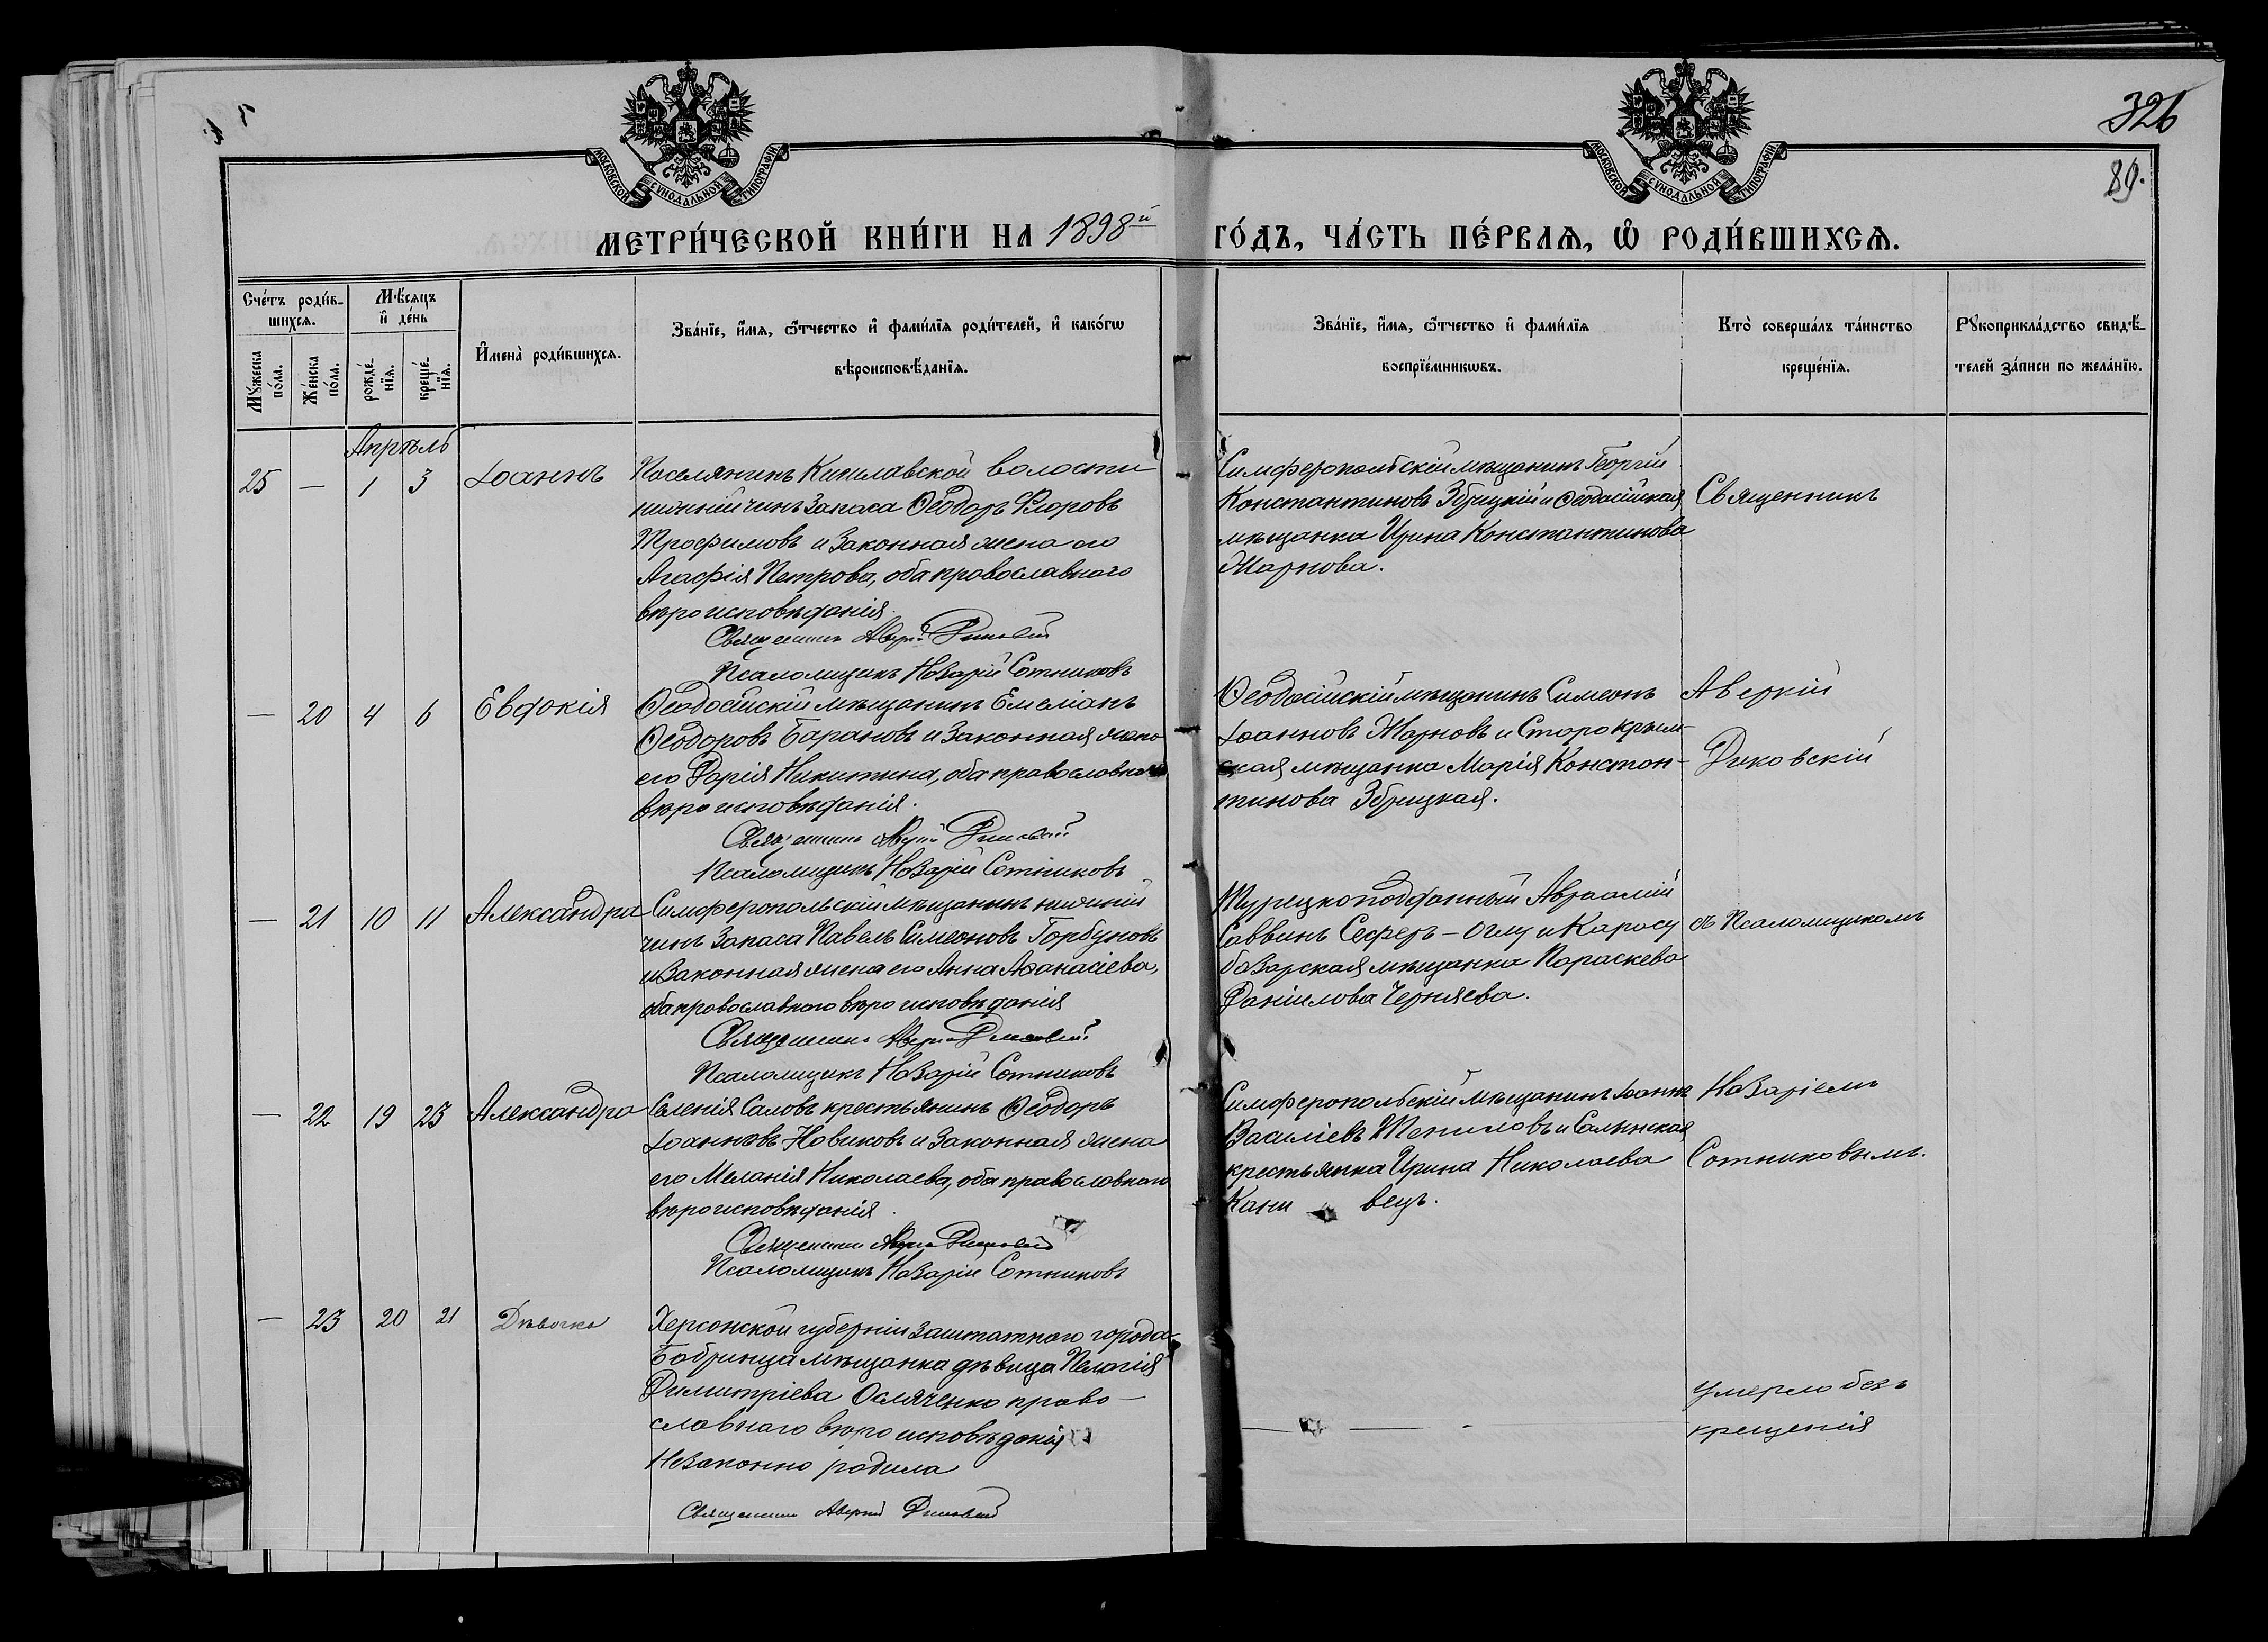 326
89.
МОСКОВСКОЙ СѴНОДАЛЬНОЙ ТИПОГРАФІИ
МОСКОВСКОЙ СѴНОДАЛЬНОЙ ТИПОГРАФІИ
МЕТРИ́ЧЕСКОЙ КНИ́ГИ НА 1898й ГО́ДЪ, ЧА́СТЬ ПЕ́РВАѦ, Ѡ РОДИ́ВШИХСѦ.
Сче́тъ роди́в-
шихсѧ.
Мѣ́сяцъ
и҆ де́нь
Мꙋ́жеска по́ла.
Же́нска по́ла.
рожде́-нїѧ.
креще́-нїѧ.
И҆мена̀ роди́вшихсѧ.
Зва́нїе, и҆́мѧ, ѻ҆́тчество и҆ фами́лїѧ роди́телей, и҆ како́гѡ
вѣроисповѣ́данїѧ.
Зва́нїе, и҆́мѧ, ѻ҆́тчество и҆ фами́лїѧ
воспрїе́мникѡвъ.
Кто̀ соверша́лъ та́инство
креще́нїѧ.
Рꙋкоприкла́дство свидѣ́-
телей за́писи по жела́нїю.
Апрѣль
25 — 1 3 Іоаннъ
Поселянинъ Кишлавской волости
нижній чинъ запаса Ѳеодоръ Флоровъ
Трофимовъ и законная жена его
Агафія Петрова, оба православнаго
вѣроисповѣданія.
Священникъ Аверкій Диковскій
Псаломщикъ Назарій Сотниковъ
Симферопольскій мѣщанинъ Георгій
Константиновъ Збрицкій и Ѳеодосійская
мѣщанка Ирина Константинова
Жарнова.
Священникъ
— 20 4 6 Евдокія
Ѳеодосійскій мѣщанинъ Емеліанъ
Ѳеодоровъ Барановъ и законная жена
его Дарія Никитина, оба православнаго
вѣроисповѣданія.
Священникъ Аверкій Диковскій
Псаломщикъ Назарій Сотниковъ
Ѳеодосійскій мѣщанинъ Симеонъ
Іоанновъ Жарновъ и Старокрым-
ская мѣщанка Марія Констан-
тинова Збрицкая.
Аверкій
Диковскій
— 21 10 11 Александра
Симферопольскій мѣщанинъ нижній
чинъ запаса Павелъ Симеоновъ Горбуновъ
и законная жена его Анна Аѳанасіева,
оба православнаго вѣроисповѣданія
Священникъ Аверкій Диковскій
Псаломщикъ Назарій Сотниковъ
Турецкоподданный Авраамій
Саввинъ Сеферъ-оглу и Карасу
базарская мѣщанка Параскева
Даніилова Черняева.
съ Псаломщикомъ
— 22 19 23 Александра
Селенія Саловъ крестьянинъ Ѳеодоръ
Іоанновъ Новиковъ и законная жена
его Меланія Николаева, оба православнаго
вѣроисповѣданія.
Священникъ Аверкій Диковскій
Псаломщикъ Назарій Сотниковъ
Симферопольскій мѣщанинъ Іоаннъ
Василіевъ Тепиловъ и Салынская
крестьянка Ирина Николаева
Кани вецъ.
Назаріемъ
Сотниковымъ.
— 23 20 21 Дѣвочка
Херсонской губерніи заштатного города
Бобринца мѣщанка дѣвица Пелагія
Димитріева Осляченко право-
славнаго вѣроисповѣданія
Незаконно родила
Священникъ Аверкій Диковскій
Умерло безъ
крещенія